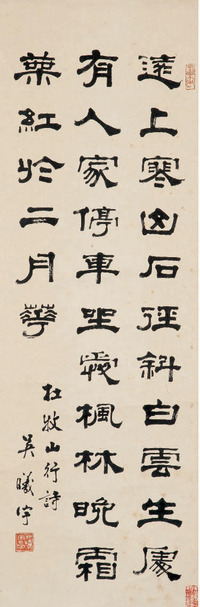 遠上寒山石徑斜白雲生處
有人家停車坐愛楓林晚霜
葉紅於二月華
杜牧山行詩
吳曦宇